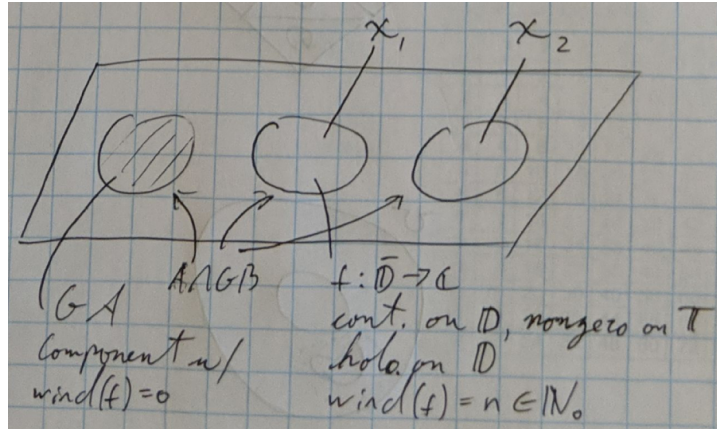 χ₁ χ₂
A∩GB
GA
component w/
wind(f)=0
f: 𝔻̄→ℂ
cont. on 𝔻, nonzero on 𝕋
holo. on 𝔻
wind(f)=n∈ℕ₀